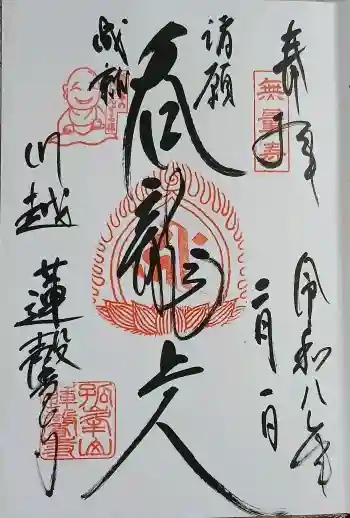 奉拝
無量寿
令和八年
二月一日
諸願
呑龍上人
成就
川越
蓮馨寺
孤峯山
蓮馨寺